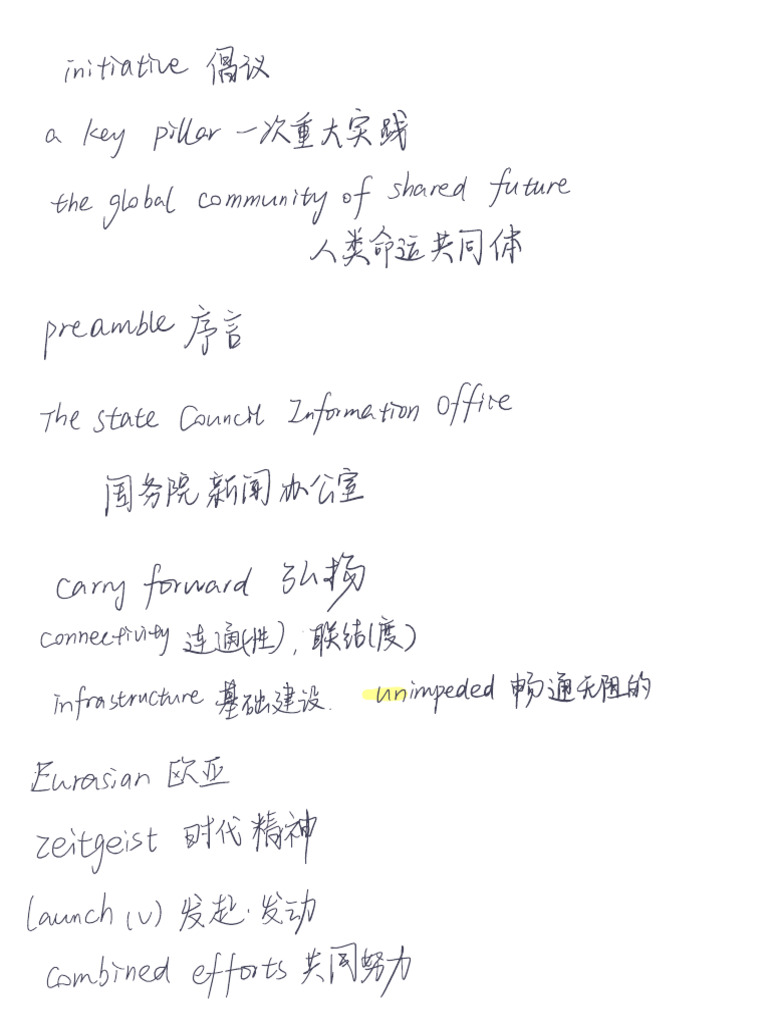 initiative 倡议
a key pillar 一次重大实践
the global community of shared future
人类命运共同体
preamble 序言
The state Council Information Office
国务院新闻办公室
carry forward 弘扬
connectivity 连通(性),联结(度)
infrastructure 基础建设. unimpeded 畅通无阻的
Eurasian 欧亚
zeitgeist 时代精神
launch (v) 发起·发动
combined efforts 共同努力